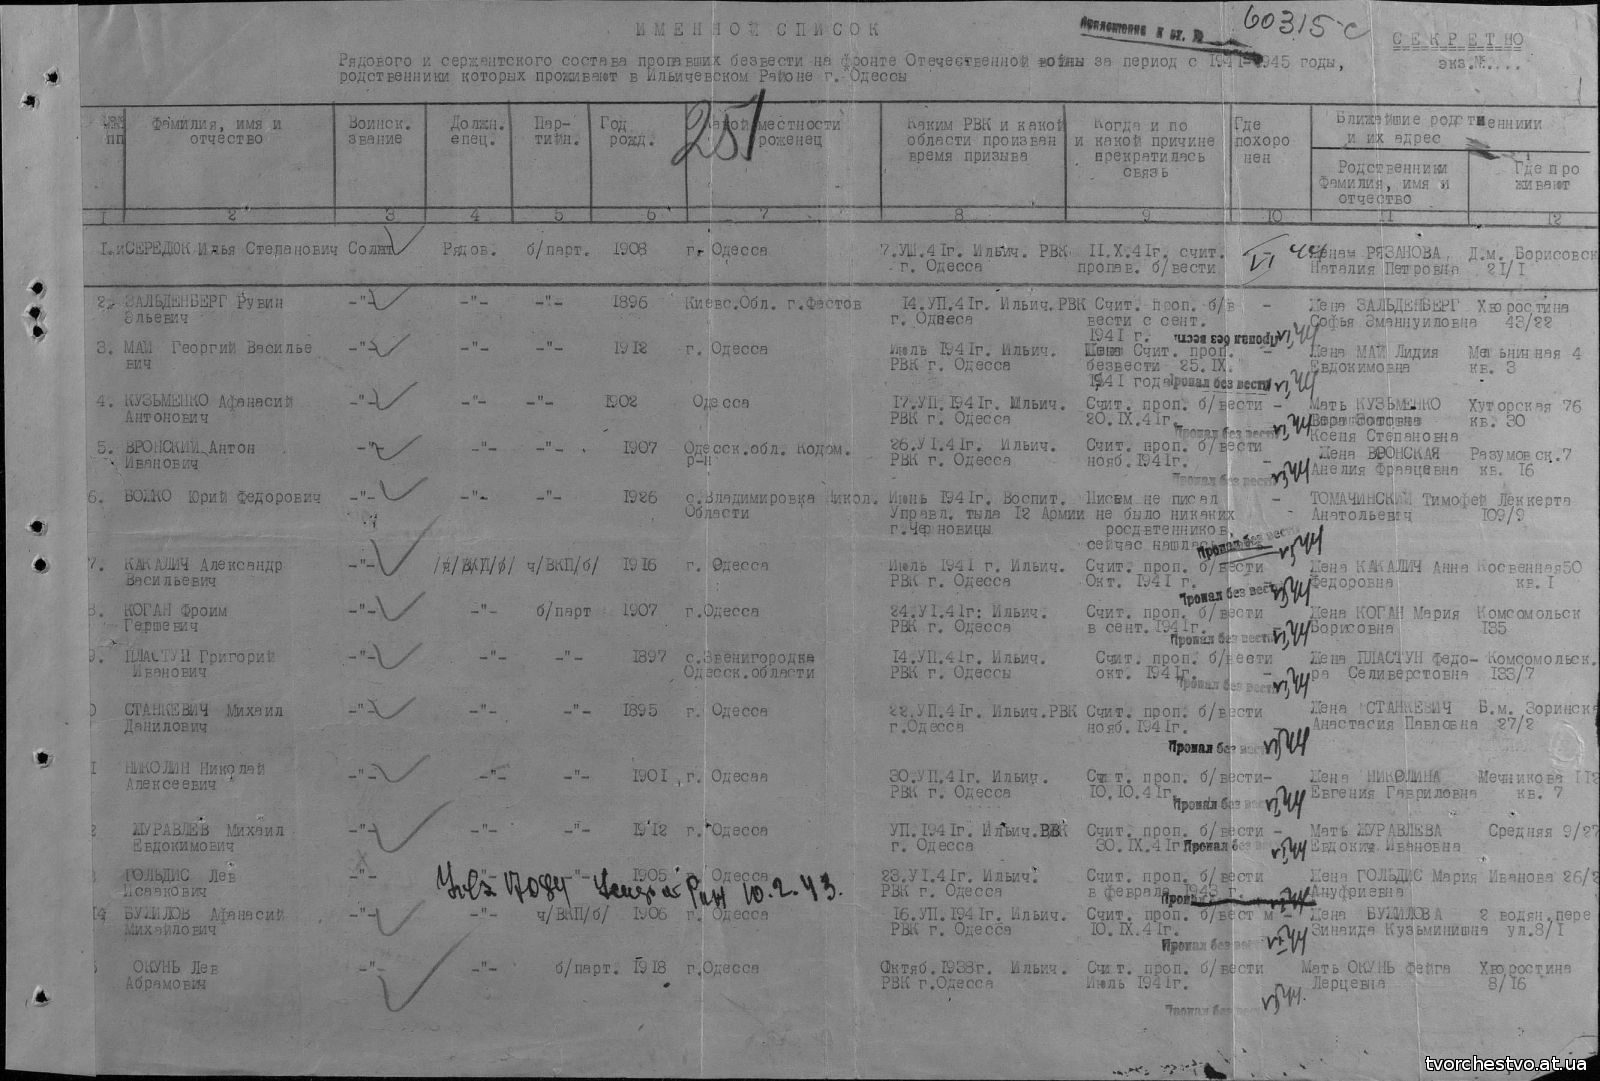 ИМЕННОЙ СПИСОК
60315-с
СЕКРЕТНО
экз.№....
Рядового и сержантского состава пропавших безвести на фронте Отечественной войны за период с 1941-1945 годы,
родственники которых проживают в Ильичевском Районе г. Одессы
251
пп Фамилия, имя и отчество Воинск. звание Должн. Пар-тийн. Год рожд. местности роженец Каким РВК и какой области произван время призыва Когда и по какой причине прекратилась связь Где похоро нен Ближайшие родственниии и их адрес
Родственники Фамилия, имя и отчество Где про живают
1 2 3 4 5 6 7 8 9 10 11 12
1. СЕРЕДЮК Илья Степанович Солат Рядов. б/парт. 1908 г. Одесса 7.УШ.41г. Ильич. РВК II.X.41г. счит. VI 44 Женам РЯЗАНОВА Д.м. Борисовск
г. Одесса пропав. б/вести Наталия Петровна 21/I
2. ЗАЛЬДЕНБЕРГ Рувин -"- -"- -"- 1896 Киевс.Обл. г.Фастов 14.УП.41г. Ильич.РВК Счит. проп. б/в - Жена ЗАЛЬДЕНБЕРГ Хворостина
Эльевич г. Одесса вести с сент. Софья Эмануиловна 43/22
1941 г. Пропал без вести
3. МАЙ Георгий Василье -"- -"- -"- 1912 г. Одесса Июль 1941г. Ильич. Счит. проп. - Жена МАЙ Лидия Мельничная 4
вич РВК г. Одесса безвести 25.IX. Евдокимовна кв. 3
1941 года Пропал без вести
4. КУЗЬМЕНКО Афанасий -"- -"- -"- 1902 Одесса 17.УП.1941г. Ильич. Счит. проп. б/вести - Мать КУЗЬМЕНКО Хуторская 76
Антонович РВК г. Одесса 20.IX.41г. кв. 30
Пропал без вести Ксеня Степановна
5. ВРОНСКИЙ Антон -"- -"- -"- 1907 Одесск.обл. Кодом. 26.УI.41г. Ильич. Счит. проп. б/вести Жена ВРОНСКАЯ Разумовск.7
Иванович р-н РВК г. Одесса нояб.1941г. - Анелия Францевна кв. 16
Пропал без вести
6. БОЖКО Юрий Федорович -"- -"- -"- 1926 с.Владимировка Никол. Июнь 1941г. Воспит. Писем не писал - ТОМАЧИНСКИЙ Тимофей Леккерта
Области Управл. тыла 12 Армии не было никаких Анатольевич 109/9
г.Черновицы росдвтенников,
сейчас нашлась Пропал без вести
7. КАКАЛИЧ Александр -"- /ч/ВКП/б/ ч/ВКП/б/ 1916 г. Одесса Июль 1941 г. Ильич. Счит. проп. б/вести Жена КАКАЛИЧ Анна Косвенная50
Васильевич РВК г. Одесса Окт. 1941 г. Федоровна кв. I
Пропал без вести
8. КОГАН Фроим -"- -"- б/парт 1907 г.Одесса 24.УI.41г. Ильич. Счит. проп. б/вести Жена КОГАН Мария Комсомольск
Гершевич РВК г. Одесса в сент. 1941г. - Борисовна 135
Пропал без вести
9. ПЛАСТУН Григорий -"- -"- -"- 1897 с.Звенигородка 14.УП.41г. Ильич. Счит. проп. б/вести Жена ПЛАСТУН Федо- Комсомольск.
Иванович Одесск.области РВК г. Одессы окт. 1941г. - ра Селиверстовна 133/7
Пропал без вести
0 СТАНКЕВИЧ Михаил -"- -"- -"- 1895 г. Одесса 22.УП.41г. Ильич.РВК Счит. проп. б/вести Жена СТАНКЕВИЧ Б.м. Зоринска
Данилович г.Одесса нояб. 1941г. Анастасия Павловна 27/2
Пропал без вести
1 НИКОЛИН Николай -"- -"- -"- 1901 г. Одесаа 30.УП.41г. Ильич. Счит. проп. б/вести- Жена НИКОЛИНА Мечникова
Алексеевич РВК г. Одесса 10.10.41г. Евгения Гавриловна кв. 7
Пропал без вести
2 ЖУРАВЛЕВ Михаил -"- -"- -"- 1912 г. Одесса УП.1941г. Ильич.РВК Счит. проп. б/вести - Мать ЖУРАВЛЕВА Средняя 9/27
Евдокимович г. Одесса 30.IX.41г Пропал без Евдокия Ивановна
ГОЛЬДИС Лев -"- 1905 г. Одесса 23.УI.41г. Ильич. Счит. проп. б/вести Жена ГОЛЬДИС Мария Иванова 26/
Исаакович 10.2.43. РВК г. Одесса в феврале 1943 г. Ануфриевна
14 БУЖИЛОВ Афанасий -"- -"- ч/ВКП/б/ 1906 г. Одесса 16.УП.1941г. Ильич. Счит. проп. б/вест и - Жена БУЖИЛОВА 2 водян.пере
Михайлович РВК г. Одесса 10.IX.41г. Зинаида Кузьминишна ул.8/I
Пропал без вести
ОКУНЬ Лев -"- -"- б/парт. 1918 г.Одесса Октяб.1938г. Ильич. Счит. проп. б/вести Мать ОКУНЬ Фейга Хворостина
Абрамович РВК г.Одесса Июль 1941г. Лерцевна 8/16
Пропал без вести
tvorchestvo.at.ua